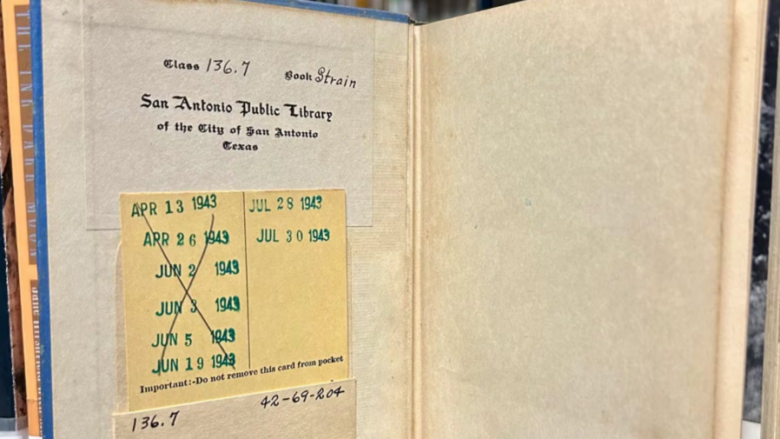 Class 136.7 Book Strain
San Antonio Public Library
of the City of San Antonio
Texas
APR 13 1943
APR 26 1943
JUN 2 1943
JUN 3 1943
JUN 5 1943
JUN 19 1943
JUL 28 1943
JUL 30 1943
Important:-Do not remove this card from pocket
136.7 42-69-204
THE INK DARK MOON